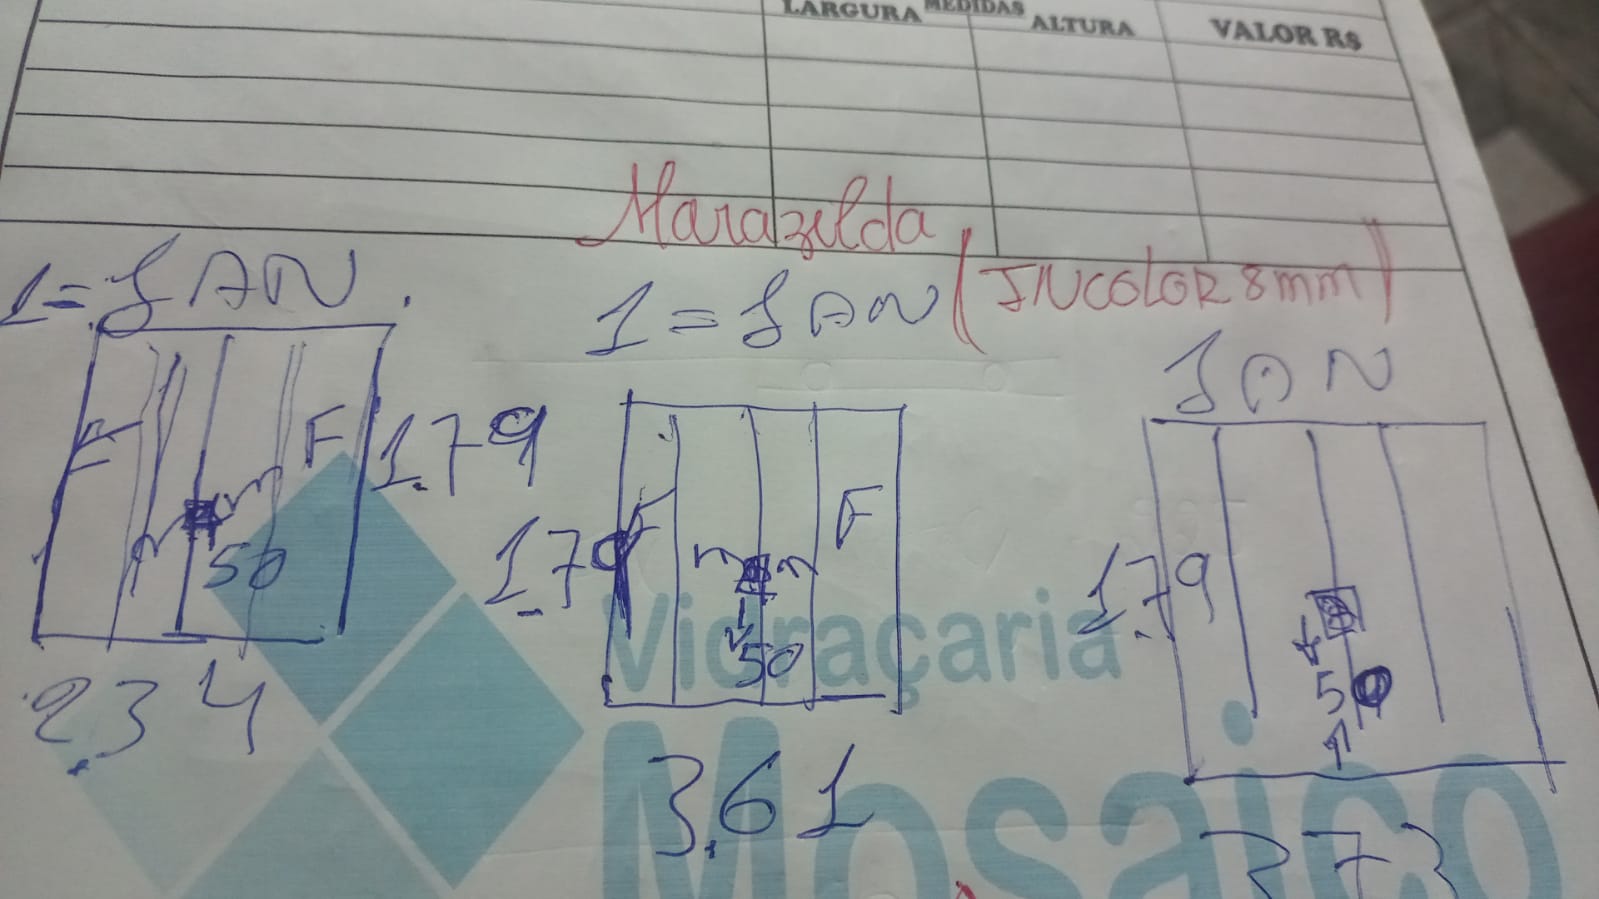 LARGURA MEDIDAS ALTURA VALOR R$
Marazilda
1 = JAN.
1 = JAN (INCOLOR 8mm)
JAN
F F 1.79
F F 1.79
1.79
m m
50
m m
50
50
2.34
3.61
373
Vidraçaria
Mosaico